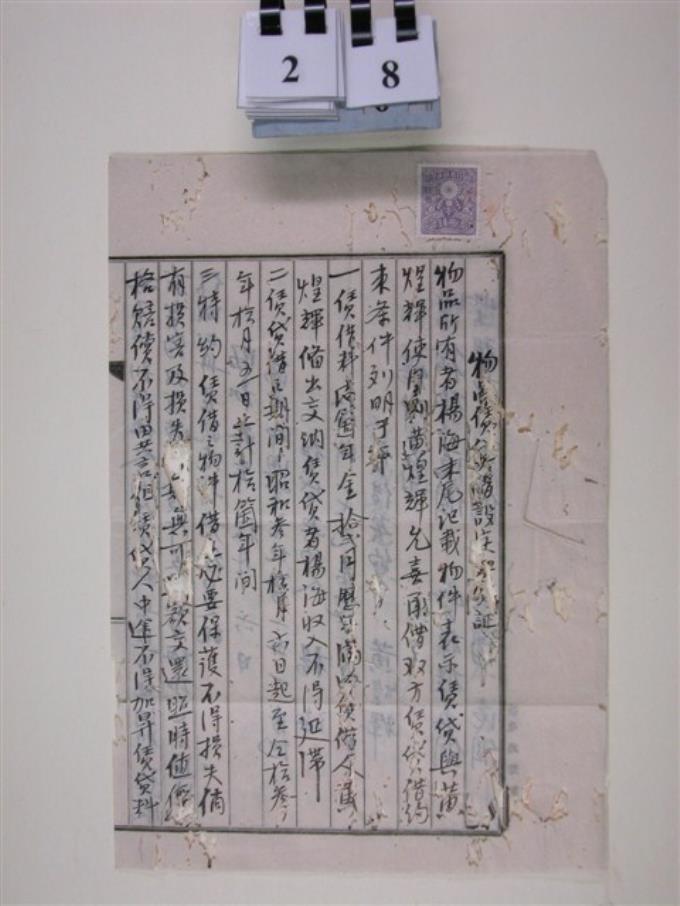 2 8
物品賃貸借設定契約証
物品所有者楊海末尾記載物件表示賃貸與黃
煌輝使用黃煌輝允喜承借双方賃貸借約
束条件列明于評
一賃借料每箇年金拾弍円歷年滿賃借人黃
煌輝備出交納賃貸者楊海收入不得延滯
二賃貸借之期间昭和叁年拾月六日起至仝拾叁
年拾月五日止計拾箇年间
三特約賃借之物件借主必要保護不得損失倘
有損害及損失無可額交還照時值價
格賠償不得異言但賃貸人中途不得加昇賃貸料